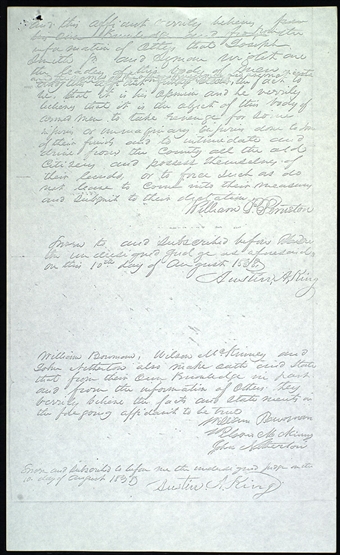 that this affiant verily believes from
his own Knowledge and from the
information of others that Joseph
Smith Jr and Lyman Wight are
the leaders of this body of
the fact
his opinion and he verily
believes that it is the object of this body of
armed men to take revenge for some
injury or immaginary injury done to some
of their friends and to intimidate and
drive from the County all the old
Citizens and possess themselves of
their lands, or to force such as do
not leave to come into their measures
and submit to their dictation
William P. Peniston
Sworn to and subscribed before
the undersigned Judge as aforesaid
on this 10th day of August 1838
Austin A. King
William Bowman, Wilson McKinney and
John Netherton also make oath and state
that from their own Knowledge in part
and from the information of Others they
verily believe the facts and statements in
the foregoing affidavit to be true
William Bowman
Wilson McKinney
John Netherton
Sworn and subscribed to before me the undersigned judge on this
day of August 1838
Austin A. King